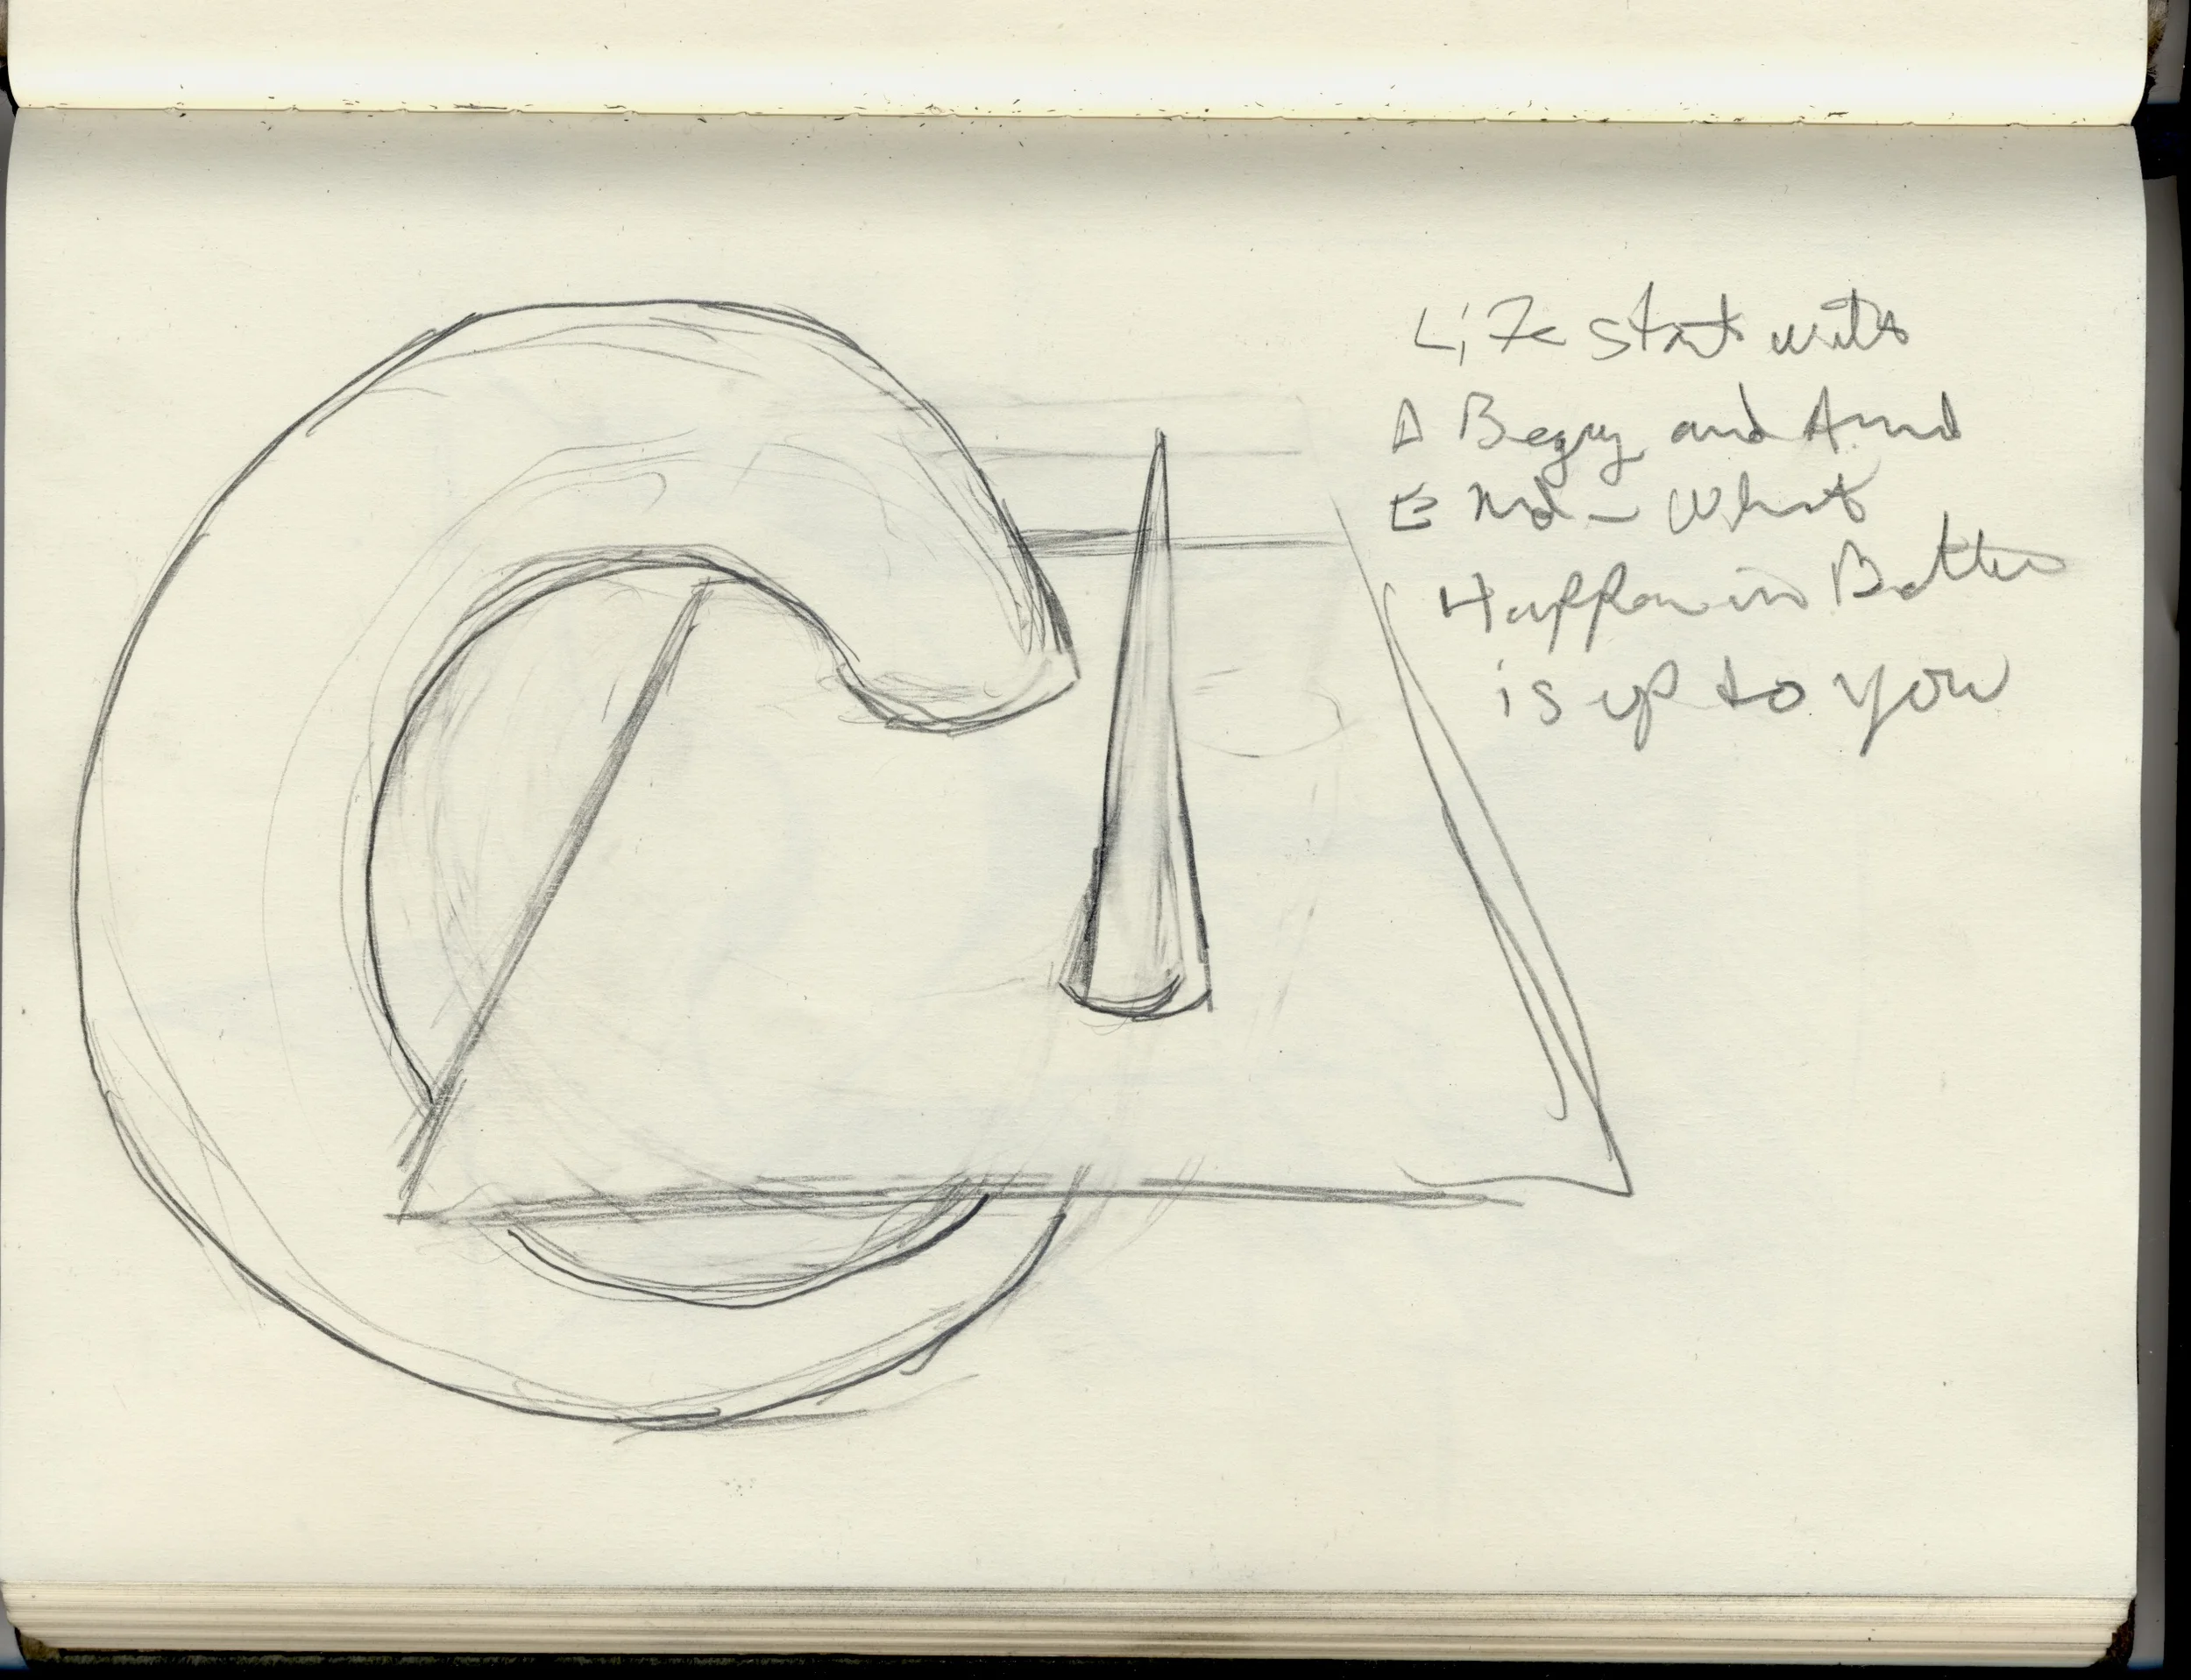 Life start with
A Begny and And
End - What
Happen in Betten
is up to you